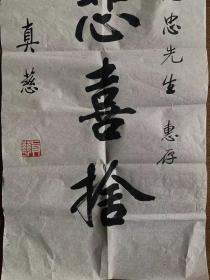 忠先生 惠存
悲喜捨
真慈